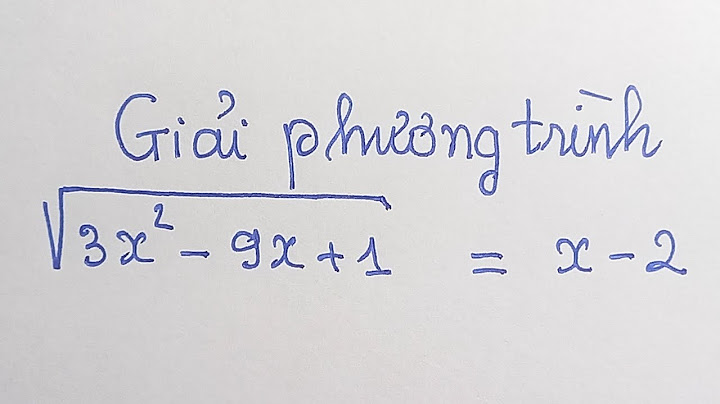 Giải phương trình
√3x² - 9x + 1 = x - 2